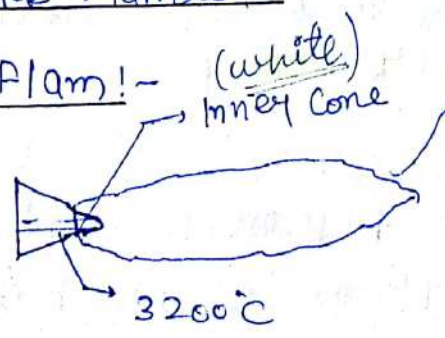 Flam!- (white)
Inner Cone
3200°C